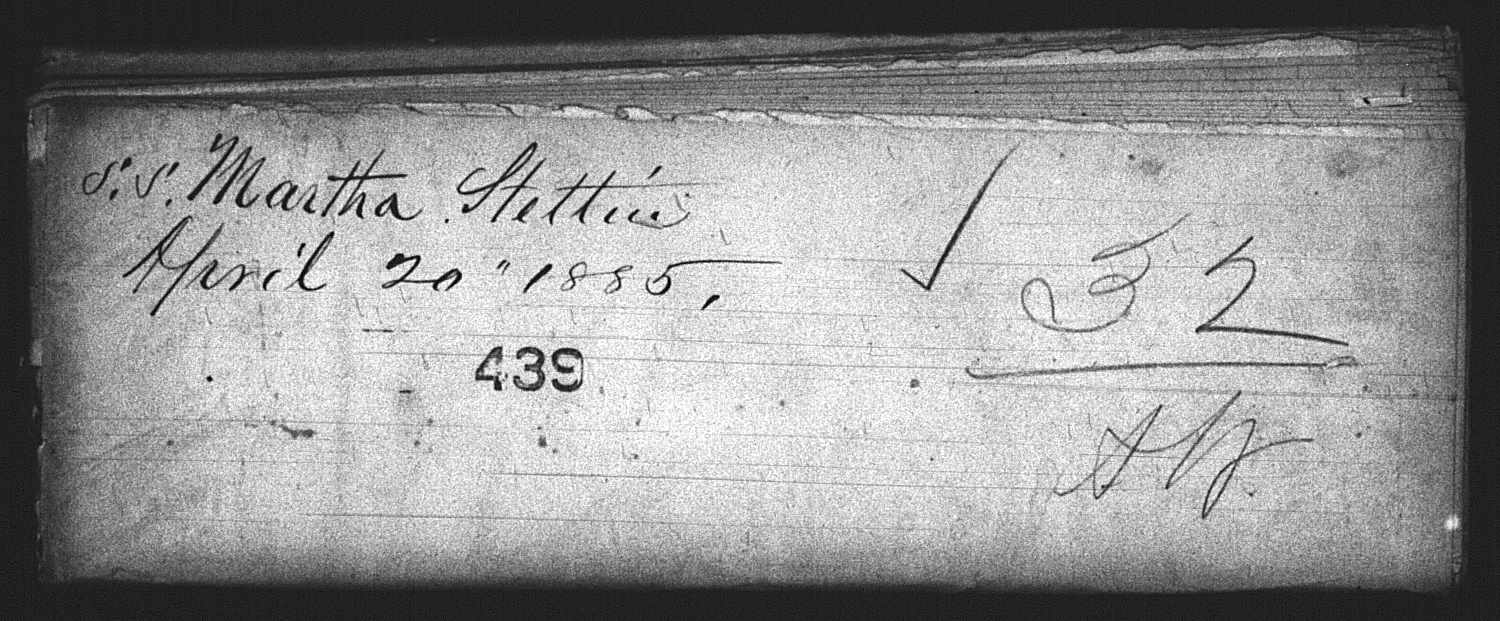 S.S. Martha Stettin
April 20" 1885,
439
32